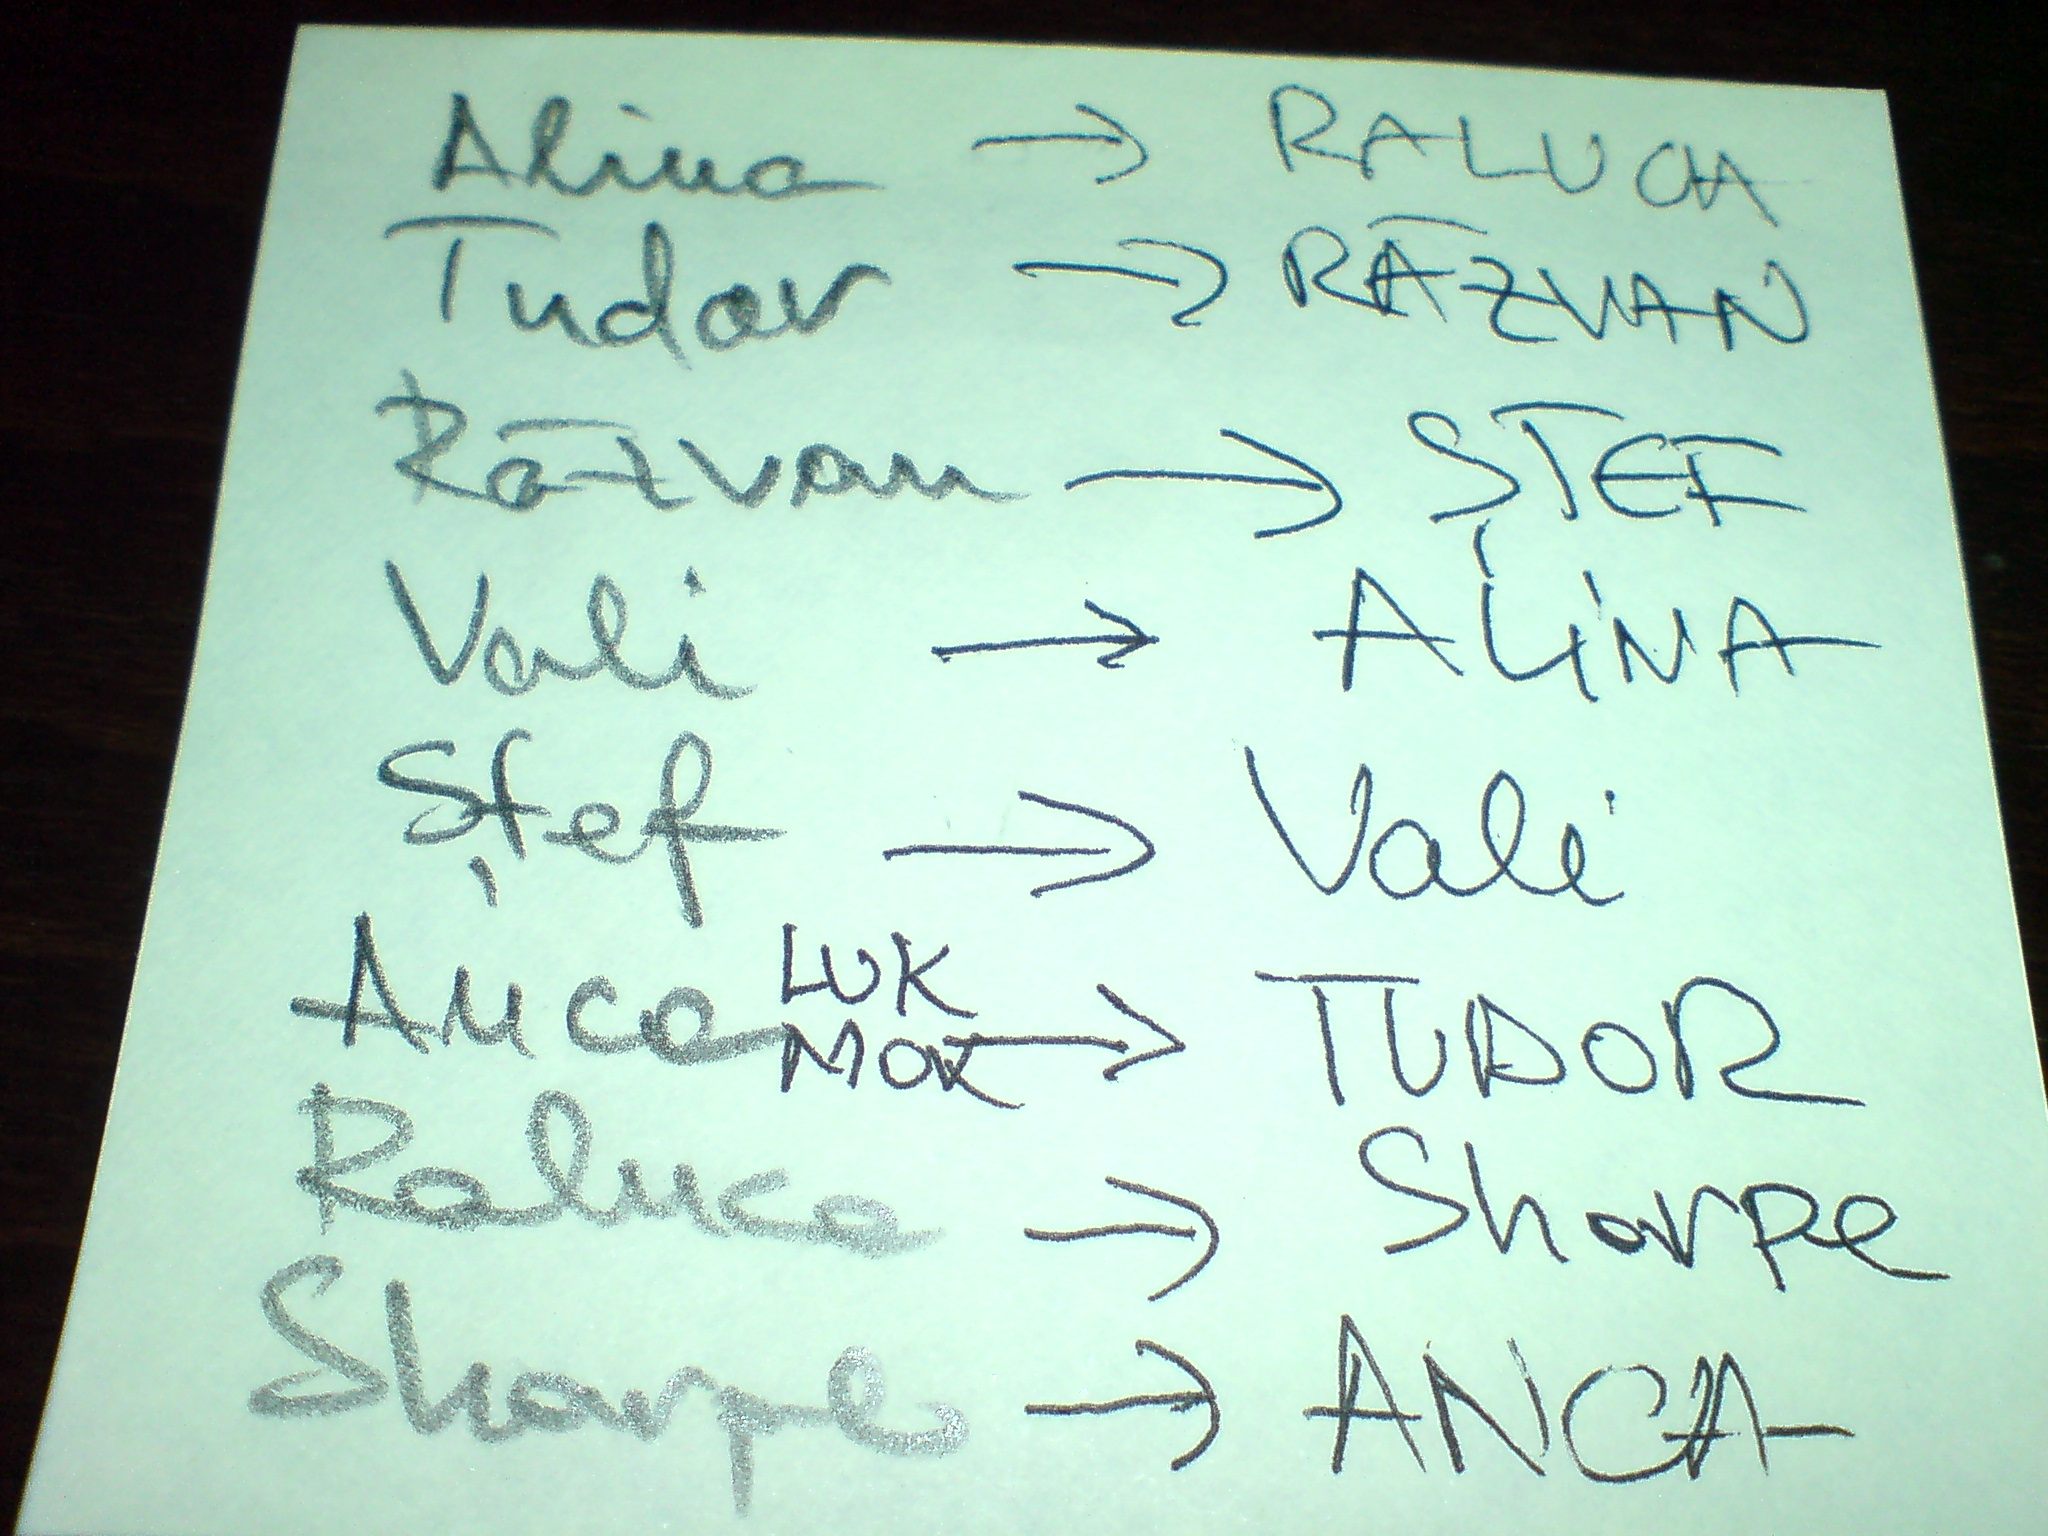 Alina → RALUCA
Tudor → RĂZVAN
Răzvan → ȘTEF
Vali → ALINA
Ștef → Vali
Anca LUK MOK → TUDOR
Raluca → Sharpe
Sharpe → ANCA